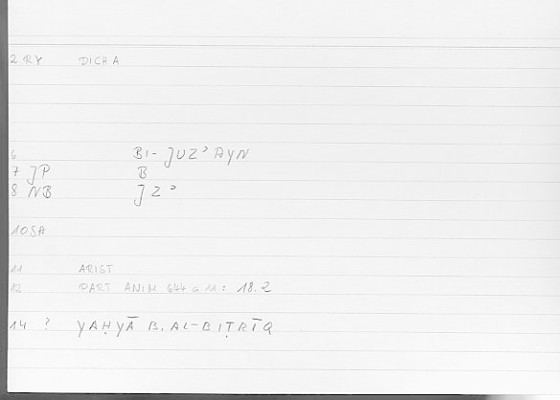 2 RY DICHA
6 BI- JUZʾAYN
7 JP B
8 NB J Z ʾ
10 SA
11 ARIST
12 PART ANIM 644 a 11: 18.2
14 ? YAḤYĀ B. AL-BIṬRĪQ